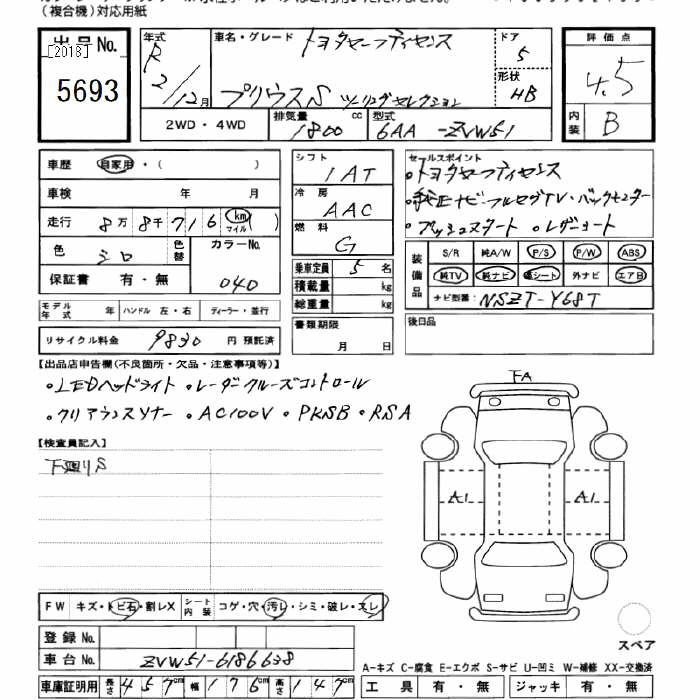 （複合機）対応用紙
出品No.
[2018]
5693
年式
R
2/12月
車名・グレード
トヨタセーフティセンス
プリウスS ツーリングセレクション
ドア
5
形状
HB
評価点
4.5
内装
B
2WD・4WD
排気量
1800
cc
型式
6AA -ZVW51
車歴
自家用・( )
車検 年 月
走行 8万8千716 km マイル ( )
色 シロ 色替
カラーNo.
040
保証書 有・無
シフト
1AT
冷房
AAC
燃料
G
乗車定員 5 名
積載量 kg
総重量 kg
セールスポイント
・トヨタセーフティセンス
・純正ナビ・フルセグTV・バックモニター
・プッシュスタート ・レザーシート
装備品
S/R 純A/W P/S P/W ABS
純TV 純ナビ 革シート 外ナビ エアB
ナビ型番 NSZT-Y68T
モデル年式 年 ハンドル 左・右 ディーラー・並行
リサイクル料金 9830 円 預託済
書類期限
月 日
後日品
【出品店申告欄(不良箇所・欠品・注意事項等)】
・LEDヘッドライト ・レーダークルーズコントロール
・クリアランスソナー ・AC100V ・PKSB ・RSA
【検査員記入】
下廻りS
FA
A1
A1
FW キズ・トビ石・割レX シート内装 コゲ・穴・汚レ・シミ・破レ・スレ
登録No.
車台No. ZVW51-6186638
車庫証明用 長さ 457cm 幅 176cm 高さ 147cm
スペア
A-キズ C-腐食 E-エクボ S-サビ U-凹ミ W-補修 XX-交換済
工具 有・無 ジャッキ 有・無